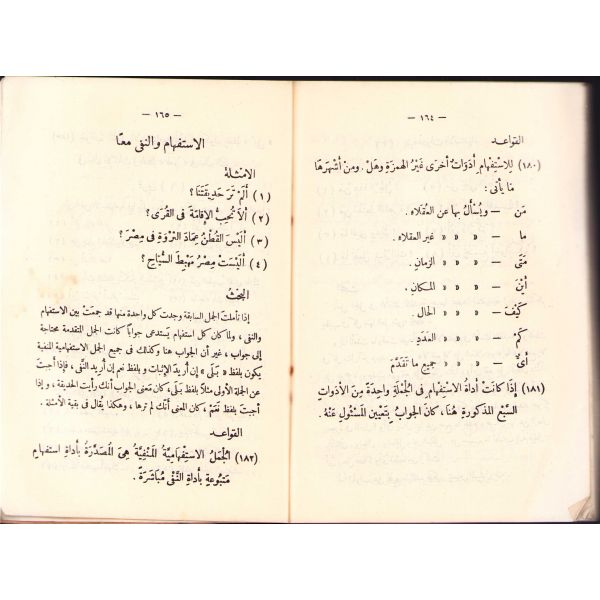 — ١٦٤ —
القواعد
(١٨٠) لِلاستِفهامِ أدَواتٌ أخرَى غَيرُ الهمزةِ وهَلْ . ومِنْ أشهرَها
مَا يأتى :
مَن — ويُسْأَلُ بها عن العُقَلاء .
ما — » » » غير العقلاء .
مَتَى — » » » الزمانِ .
أيْنَ — » » » المكانِ .
كَيْفَ — » » » الحالِ .
كَمْ — » » » العَدَدِ .
أىّ — » » » جميع ما تَقَدَّمَ
(١٨١) إذَا كانَتْ أدَاةُ الاستِفهامِ فى الجُمْلةِ واحِدَةً مِنَ الأدَواتِ
السَّبْعِ المذكورةِ هُنَا ، كانَ الجوابُ بِتَعْيِينِ المَسْئولِ عَنْهُ .
— ١٦٥ —
الاستفهام والنفى معًا
الامثلة
(١) أَلَمْ تَرَ حَدِيقَتَنَا ؟
(٢) أَلاَ تُحِبُّ الإقامَةَ فى القُرَى ؟
(٣) أَلَيْسَ القُطْنُ عِمَادَ الثَّرْوَةِ فى مِصْرَ ؟
(٤) أَلَيْسَتْ مِصْرُ مَهْبِطَ السُّيَّاحِ ؟
البحث
إذا تأملت الجمل السابقة وجدت كل واحدة منها قد جمعت بين الاستفهام
والنفى ، ولما كان كل استفهام يستدعى جوابا كانت الجمل المتقدمة محتاجة
إلى جواب ، غير أن الجواب هنا وكذلك فى جميع الجمل الاستفهامية المنفية
يكون بلفظ « بَلَى » إن أريد الإثبات وبلفظ نعم إن أريد النَّفى ، فإذا أجبتَ
عن الجملة الأولى مثلا بلفظ بَلَى ، كان معنى الجواب أنك رأيت الحديقة ، وإذا
أجبتَ بلفظ نَعَمْ ، كان المعنى أنك لم ترها ، وهكذا يُقال فى بقية الأمثلة .
القواعد
(١٨٢) الجُمَلُ الاستِفهاميَّةُ المَنفِيَّةُ هِىَ المُصَدَّرَةُ بأداةِ استفهامٍ
مَتبُوعةٍ بأداةِ النَّفْى مُبَاشَرَةً .